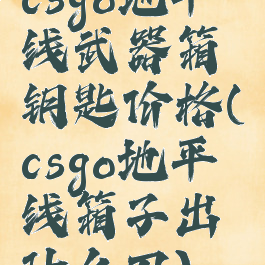 csgo地平
线武器箱
钥匙价格(
csgo地平
线箱子出